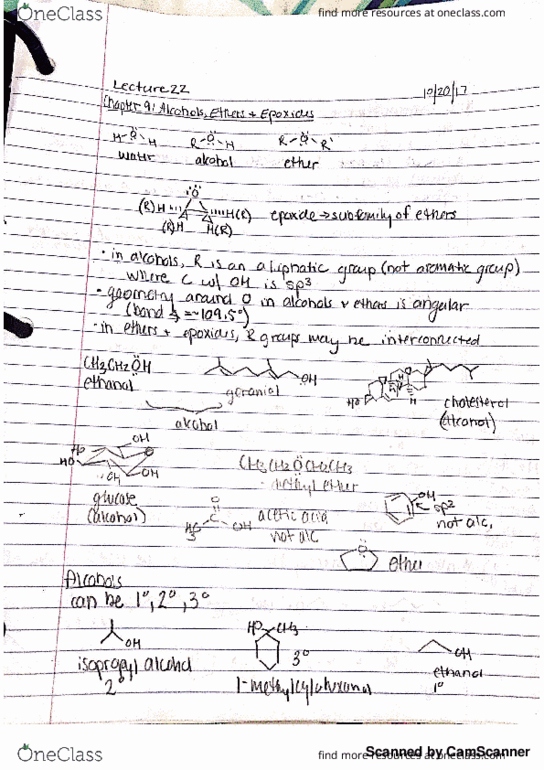 OneClass
find more resources at oneclass.com
Lecture 22
10/20/17
Chapter 9: Alcohols, Ethers + Epoxides
H-Ö-H R-Ö-H R-Ö-R'
water alcohol ether
(R)H H(R) epoxide → subfamily of ethers
(R)H H(R)
· in alcohols, R is an aliphatic group (not aromatic group)
where C w/ OH is sp³
· geometry around O in alcohols + ethers is angular
(bond ∡ ≈ 109.5°)
· in ethers + epoxides, R groups may be interconnected
CH₃CH₂ÖH
OH
ethanol
geraniol
HO H H
cholesterol
(alcohol)
alcohol
HO OH
HO OH
OH
CH₃CH₂ÖCH₂CH₃
diethyl ether
glucose
(alcohol)
O
H₃C C OH
acetic acid
not alc
OH
sp²
not alc.
O
ether
Alcohols
can be 1°, 2°, 3°
OH
HO CH₃
OH
isopropyl alcohol
2°
3°
1-methylcyclohexanol
ethanol
1°
OneClass
find more resources at oneclass.com
Scanned by CamScanner